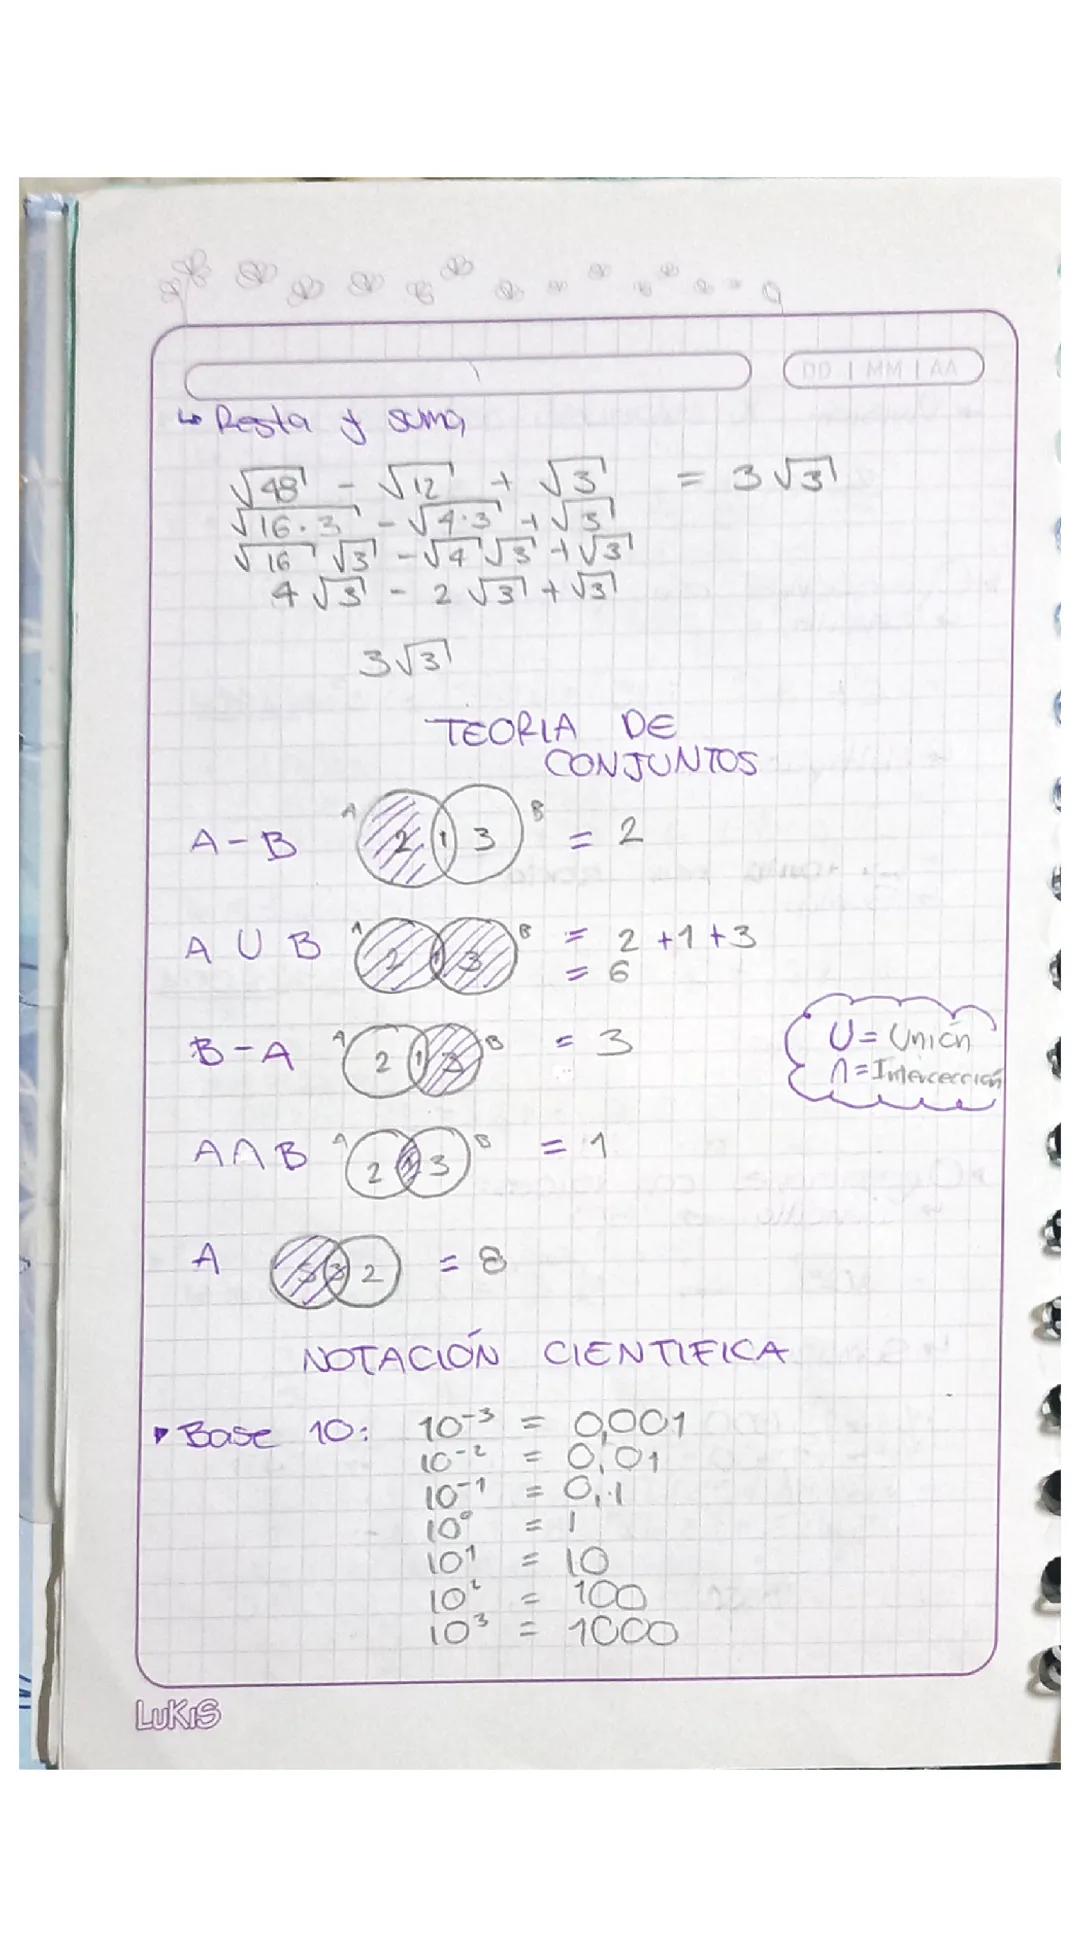 DD | MM | AA
↳ Resta y suma
√48 - √12 + √3 = 3√3
√16·3 - √4·3 + √3
√16 √3 - √4 √3 + √3
4√3 - 2√3 + √3
3√3
TEORIA DE
CONJUNTOS
A-B A 2 1 3 B = 2
A U B A 2 1 3 B = 2+1+3
= 6
B-A A 2 1 3 B = 3
U = Unión
∩ = Intercección
A∩B A 2 1 3 B = 1
A 2 = 8
NOTACIÓN CIENTIFICA
Base 10: 10⁻³ = 0,001
10⁻² = 0,01
10⁻¹ = 0,1
10⁰ = 1
10¹ = 10
10² = 100
10³ = 1000
LuKiS